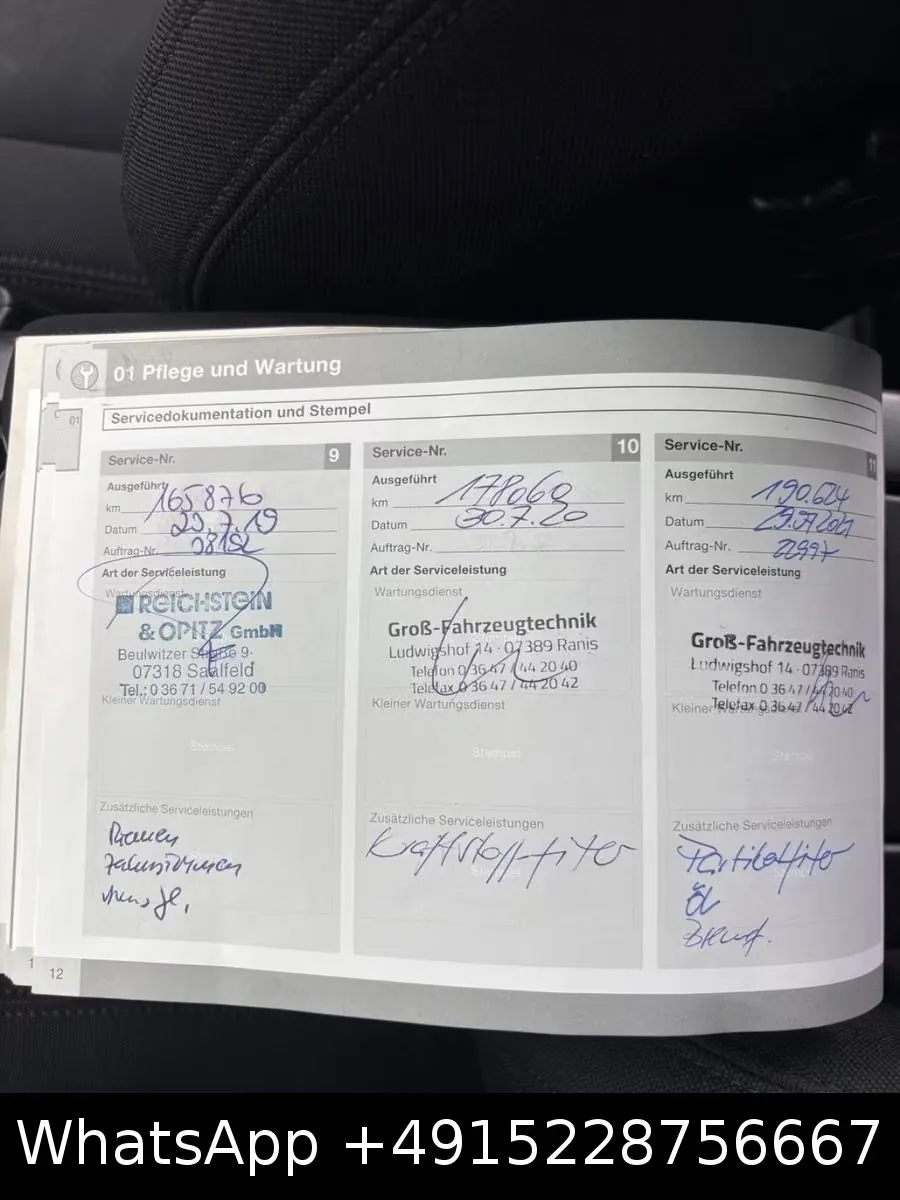 01 Pflege und Wartung
01
Servicedokumentation und Stempel
Service-Nr. 9
Ausgeführt
km 165876
Datum 29.7.19
Auftrag-Nr.
Art der Serviceleistung
Wartungsdienst
REICHSTEIN
& OPITZ GmbH
Beulwitzer Straße 9
07318 Saalfeld
Tel.: 0 36 71 / 54 92 00
Kleiner Wartungsdienst
Stempel
Zusätzliche Serviceleistungen
Service-Nr. 10
Ausgeführt
km 178060
Datum 30.7.20
Auftrag-Nr.
Art der Serviceleistung
Wartungsdienst
Groß-Fahrzeugtechnik
Ludwigshof 14 · 07389 Ranis
Telefon 0 36 47 / 44 20 40
Telefax 0 36 47 / 44 20 42
Kleiner Wartungsdienst
Stempel
Zusätzliche Serviceleistungen
Kraftstoff-filter
Service-Nr. 11
Ausgeführt
km 190.624
Datum 29.07.2021
Auftrag-Nr. 22997
Art der Serviceleistung
Wartungsdienst
Groß-Fahrzeugtechnik
Ludwigshof 14 · 07389 Ranis
Telefon 0 36 47 / 44 20 40
Telefax 0 36 47 / 44 20 42
Kleiner Wartungsdienst
Stempel
Zusätzliche Serviceleistungen
Partikelfilter
Öl
1
12
WhatsApp +4915228756667